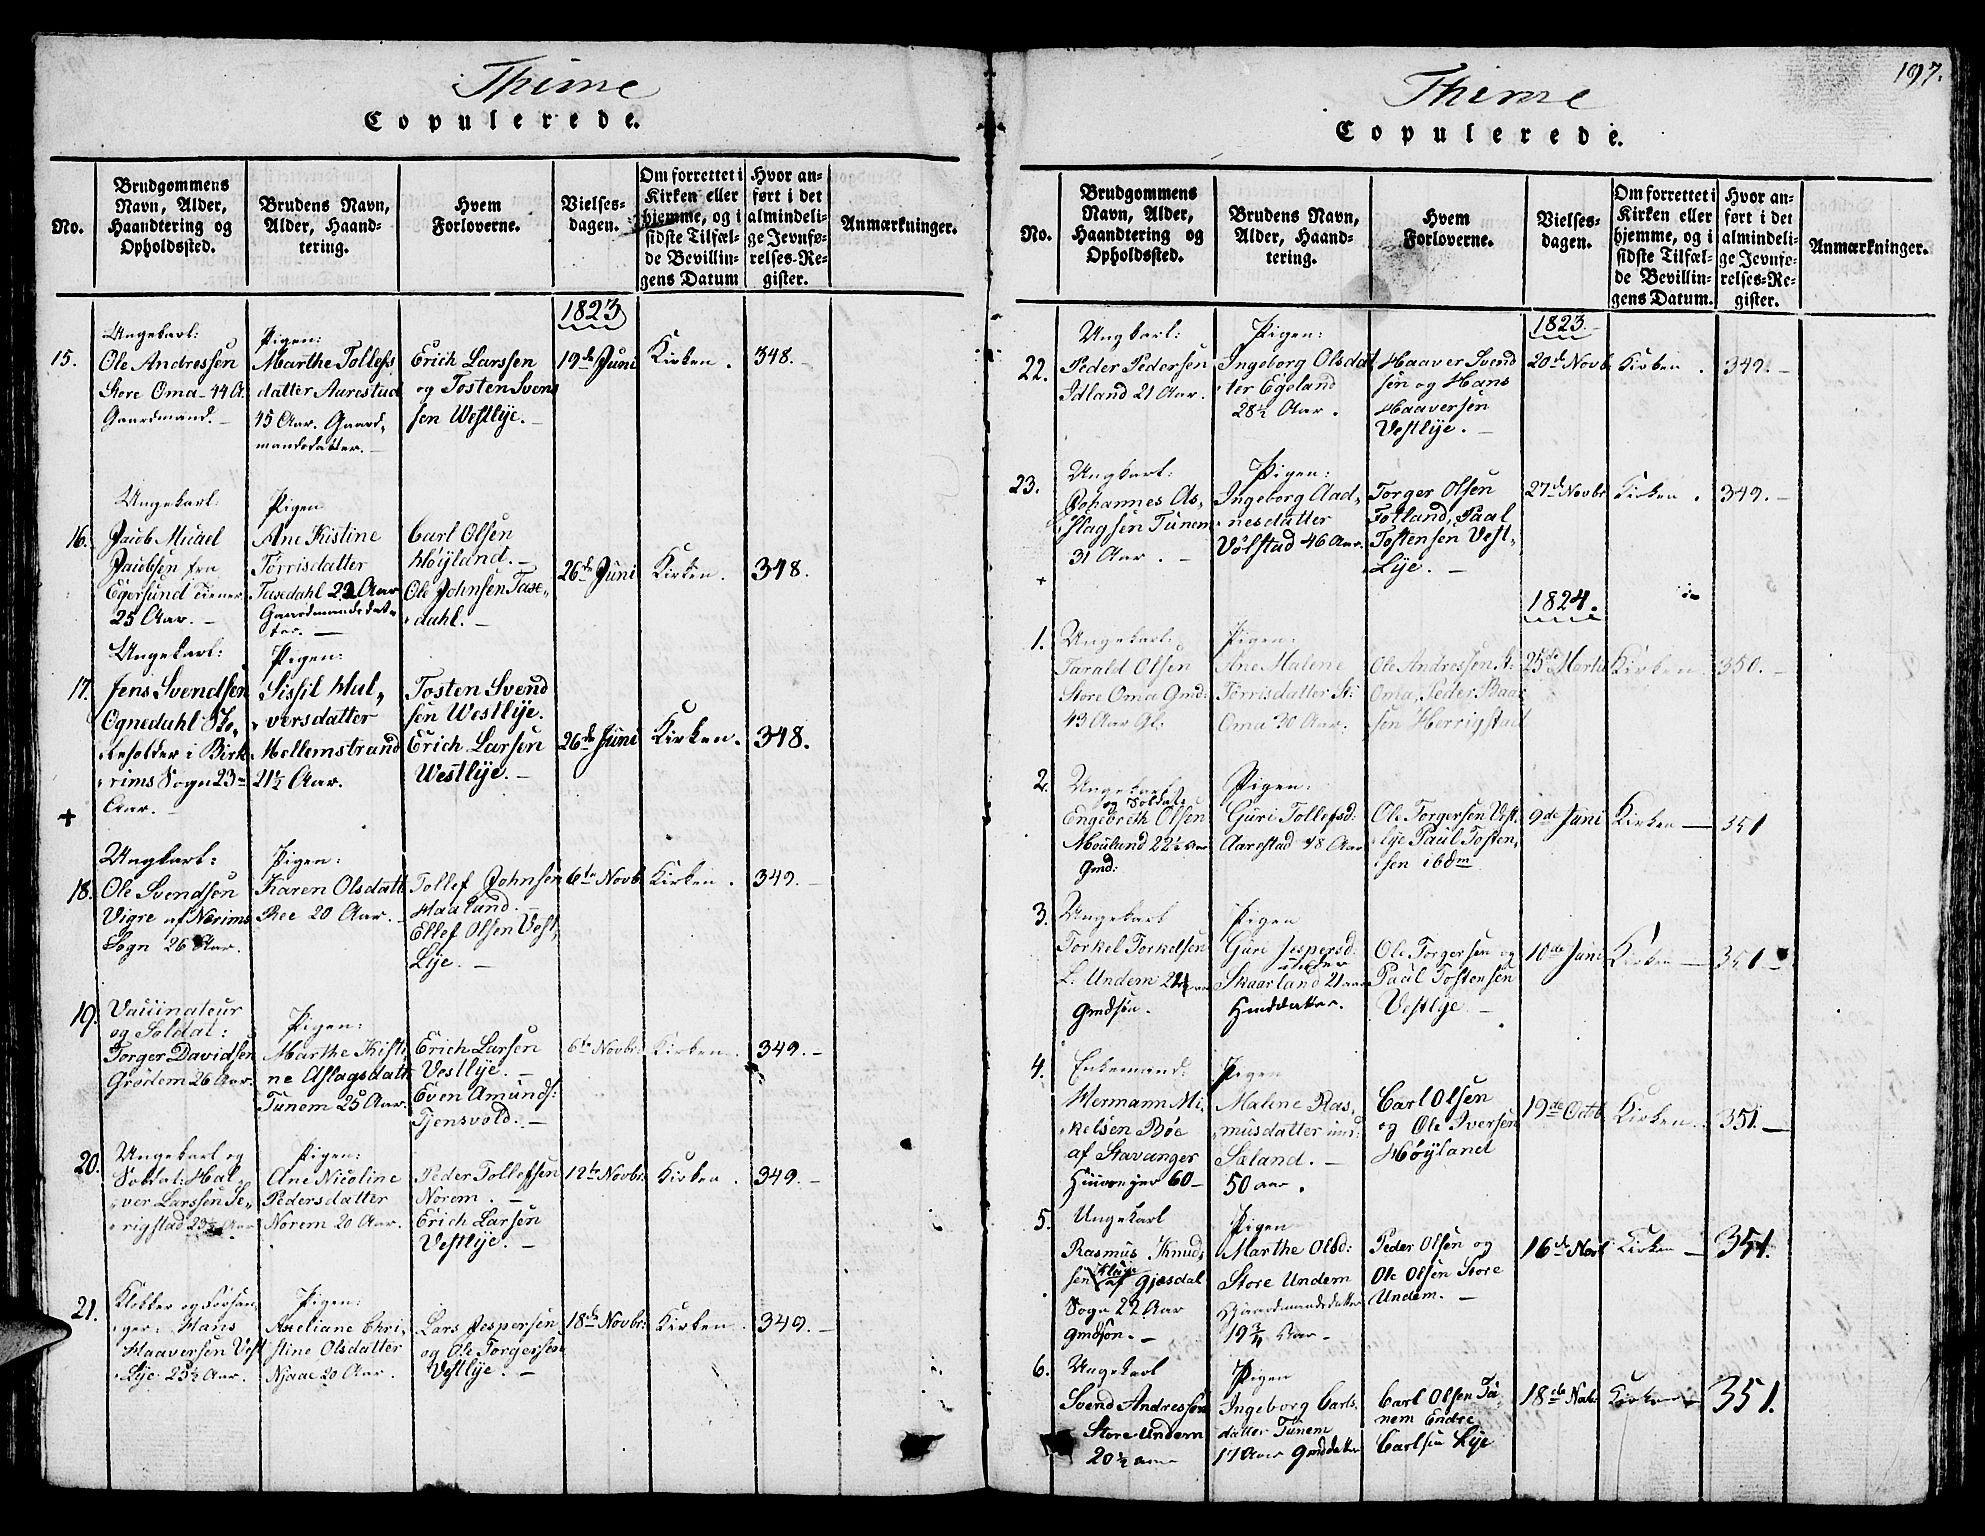 Thime
Copulerede.
No.
Brudgommens
Navn, Alder,
Haandtering og
Opholdssted.
Brudens Navn,
Alder, Haand-
tering.
Hvem
Forloverne.
Vielses-
dagen.
Om forrettet i
Kirken eller
hjemme, og i
sidste Tilfæl-
de Bevillin-
gens Datum
Hvor an-
ført i det
almindeli-
ge Jevnfø-
relses-Re-
gister.
Anmærkninger.
1823
15.
Ungekarl:
Ole Andressen
Store Oma 44 A.
Gaardmand.
Pigen:
Marthe Tollefs
datter Aarestad
45 Aar. Gaard,
mandsdatter.
Erich Larssen
og Tosten Svens
sen Westlye.
19de Juni
Kirken.
348.
16.
Ungekarl:
Jacob Micael
Jacobsen fra
Egersund Tiener
25 Aar.
Pigen
Ane Kistine
Törrisdatter
Tasedahl 22 Aar
Gaardmandsdat,
ter.
Carl Olsen
Höyland.
Ole Johnsen Tase,
dahl.
26de Juni
Kirken.
348.
17.
Ungekarl:
Jens Svendsen
Ognedahl Sko,
leholder i Birk,
rims Sogn 23
Aar.
Pigen:
Sissil Hul,
versdatter
Mellemstrand
21½ Aar.
Tosten Svend
sen Westlye.
Erich Larsen
Westlye.
26de Juni
Kirken.
348.
+
18.
Ungkarl:
Ole Svendsen
Vigre af Nærims
Sogn 26 Aar.
Pigen:
Karen Olsdatt
Ree 20 Aar.
Tollef Johnsen
Haaland.
Ellef Olsen Vest,
Lye.
6te Novb
Kirken.
349.
19.
Vaccinateur
og Soldat:
Torger Davidsen
Grödem 26 Aar.
Pigen:
Marthe Kisti
ne Aslagsdatt
Tunem 25 Aar.
Erich Larsen
Vestlye.
Even Amunds:
Tjensvold.
6te Novbr:
Kirken.
349.
20.
Ungekarl og
Soldat: Hal,
ver Larssen Se,
rigstad 23½ Aar
Pigen:
Ane Nicoline
Pedersdatter
Norem 20 Aar.
Peder Tollefsen
Norem.
Erich Larsen
Vestlye.
12te Novbr:
Kirken.
349.
21.
Klokker og Forsan,
ger: Hans
Haaversen Vest
Lye 25½ Aar.
Pigen:
Axeliane Chri,
stine Olsdatter
Njaae 20 Aar.
Lars Jespersen
og Ole Torgersen
Vestlye.
18de Novbr:
Kirken.
349.
197.
Thime
Copulerede.
No.
Brudgommens
Navn, Alder,
Haandtering og
Opholdssted.
Brudens Navn,
Alder, Haand-
tering.
Hvem
Forloverne.
Vielses-
dagen.
Om forrettet i
Kirken eller
hjemme, og i
sidste Tilfæl-
de Bevillin-
gens Datum.
Hvor an-
ført i det
almindeli-
ge Jevnfø-
relses-Re-
gister.
Anmærkninger.
1823.
22.
Ungkarl:
Peder Pedersen
Idland 21 Aar.
Pigen:
Ingeborg Olsdat
ter Egeland
28½ Aar.
Haaver Svend
sen og Hans
Haaversen
Vestlye.
20de Novb
Kirken.
349.
23.
Ungkarl:
Johannes As,
slagsen Tunem
31 Aar.
Pigen:
Ingeborg Aad,
nesdatter
Völstad 46 Aar.
Torger Olsen
Fotland, Paal
Tostensen Vest,
Lye.
27de Novbr
Kirken.
349.
+
1824.
1.
Ungekarl:
Tarald Olsen
Store Oma Gmd:
43 Aar Gl:
Pigen:
Ane Malene
Törrisdatter St:
Oma 30 Aar.
Ole Andressen St:
Oma, Peder Baar
sen Herrigstad
25de Marts
Kirken.
350.
2.
Ungekarl
og Soldat:
Engebreth Olsen
22½ Aar
Gmd:
Pigen:
Guri Tollefsd:
Aarestad 48 Aar
Ole Torgersen Vest,
lye Paul Tosten,
sen ibdm
9de Juni
Kirken
351
3.
Ungekarl
Torkel Torkelsen
L. Undem 24½ Aar
Gmdsön.
Pigen
Guri Jespersd:
Skaarland 21 aar
datter.
Ole Torgersen og
Paul Tostensen
Vestlye.
10de Juni
Kirken
351
4.
Enkemand:
Hermann Mi,
kelsen Böe
af Stavanger
60
Pigen
Malene Ras,
musdatter
Sæland.
50 aar.
Carl Olsen
og Ole Iversen
Höyland
19de Octb
Kirken.
351.
5.
Ungekarl
Rasmus Knud,
sen Kluge
af Gjesdal
Sogn 22 Aar
Gmdsön.
Pigen
Marthe Olsd:
Store Undem
Gaardmandsdatter
19¾ Aar
Peder Olsen og
Ole Olsen Store
Undem.
16de Novb
Kirken
351.
6.
Ungekarl
Svend Andressen
Store Undem
20½ aar
Pigen
Ingeborg Carls,
datter Tunem
17 Aar Gmddatter
Carl Olsen Tu,
nem Endre
Carlsen Lye
18de Novb
Kirken
351.